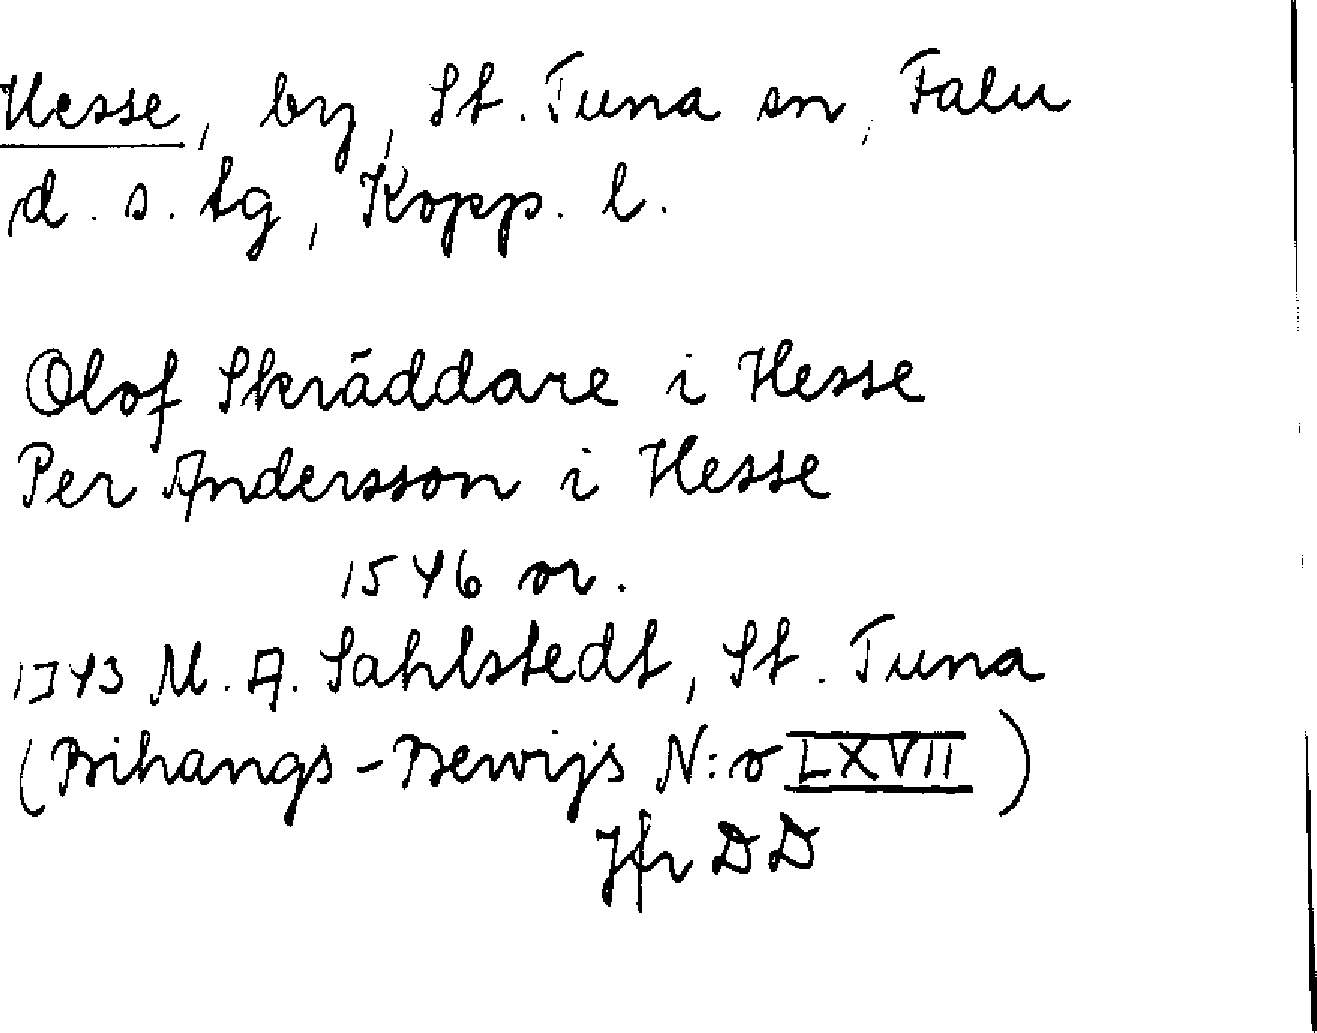 Hesse, by, St. Tuna sn, Falu
d. s. tg, Kopp. l.
Olof Skräddare i Hesse
Per Andersson i Hesse
1546 or.
1743 M. A. Sahlstedt, St. Tuna
(Bihangs-Bewijs N:o LXVII)
Jfr DD